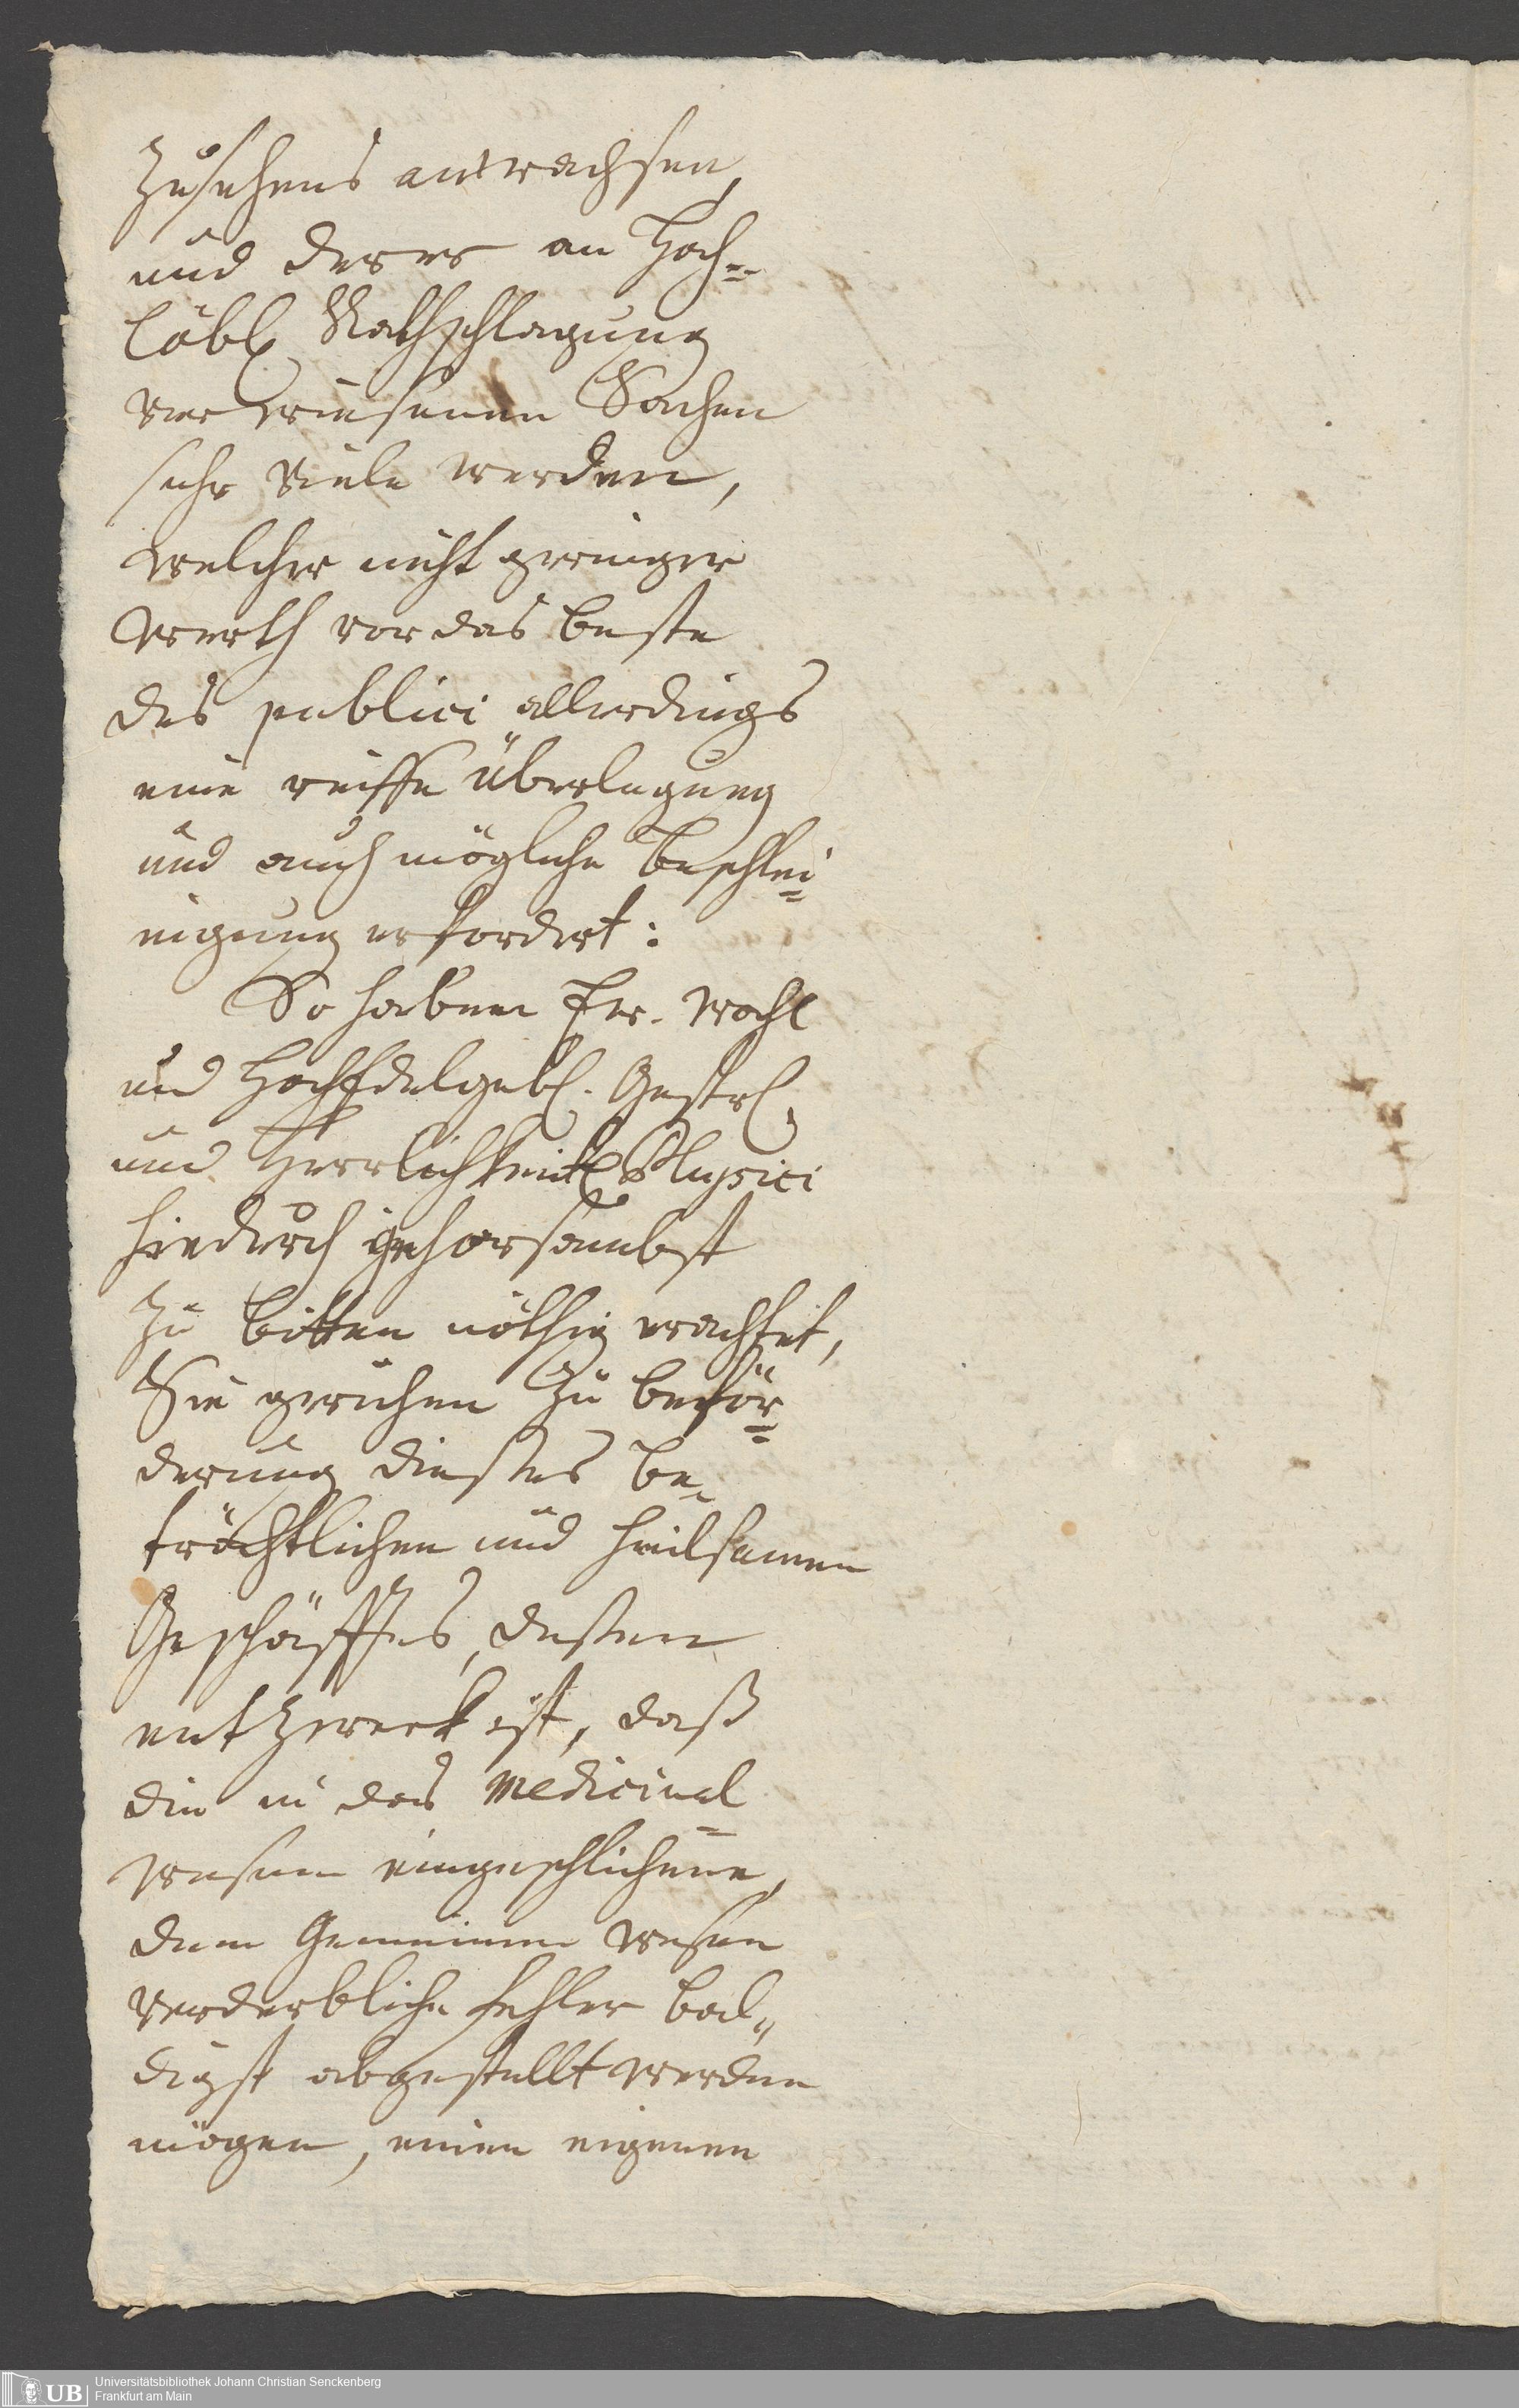 Zusehens anwachsen,
und derer an Hoch=
löbl Rathschlagung
verwiesenen Sachen
sehr viele werden,
welcher nicht geringer
werth vor das beste
des publici allerdings
eine reiffe überlegung
und auch mögliche beschlei=
nigung erfordert:
So haben Ew. Wohl
und HochEdelgebl. Gestrl.
und Herrlichkeitl Physici
hiedurch gehorsambst
zu bitten nöthig erachtet,
Sie geruhen zu beför=
derung dießes be=
trächtlichen und heilsamen
Geschäfftes, deßen
entzweck ist, daß
die in das Medicinal=
wesen eingeschlichene,
dem Gemeinen wesen
verderbliche fehler bal=
digst abgestellt werden
mögen, einen eigenen
UB
Universitätsbibliothek Johann Christian Senckenberg
Frankfurt am Main